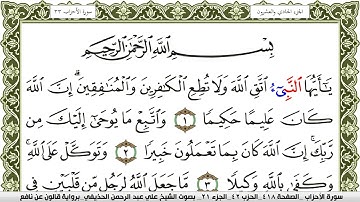 الجزء الحادي والعشرون سورة الأحزاب ٣٣
بِسْمِ اللَّهِ الرَّحْمَٰنِ الرَّحِيمِ
يَٰأَيُّهَا النَّبِيءُ اتَّقِ اللَّهَ وَلَا تُطِعِ الْكَٰفِرِينَ وَالْمُنَٰفِقِينَ إِنَّ اللَّهَ
كَانَ عَلِيمًا حَكِيمًا ١ وَاتَّبِعْ مَا يُوحَىٰ إِلَيْكَ مِن
رَّبِّكَ إِنَّ اللَّهَ كَانَ بِمَا تَعْمَلُونَ خَبِيرًا ٢ وَتَوَكَّلْ عَلَى اللَّهِ
وَكَفَىٰ بِاللَّهِ وَكِيلًا ٣ مَّا جَعَلَ اللَّهُ لِرَجُلٍ مِّن قَلْبَيْنِ فِي
سورة الأحزاب . الصفحة ٤١٨ . الحزب ٤٢ . الجزء ٢١ . بصوت الشيخ علي عبد الرحمن الحذيفي . برواية قالون عن نافع